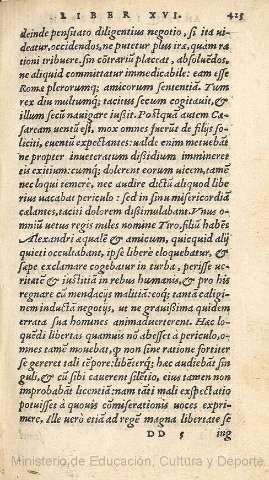 LIBER XVI. 425
deinde pensitato diligentius negotio, si ita vi-
deatur, occidendos, ne putetur plus iræ, quam ra
tioni tribuere. sin cōtrariū placeat, absoluēdos,
ne aliquid committatur immedicabile: eam esse
Romæ plerorumq; amicorum sententiā. Tum
rex diu multumq; tacitus secum cogitauit, &
illum secū nauigare iußit. Postquā autem Cæ-
saream uentū est, mox omnes fuerūt de filijs sol-
liciti, euentū expectantes: ualde enim metuebāt
ne propter inueteratum dissidium immineret
eis exitium: cumq; dolerent eorum uicem, tamē
nec loqui temere, nec audire dictū aliquod libe
rius uacabat periculo: sed in sinu misericordiā
cælantes, taciti dolorem dißimulabant. Vnus o-
mniū uetus regis miles nomine Tiro, filiū habēs
Alexandri æqualē & amicum, quicquid alij
quieti occultabant, ipse liberè eloquebatur, &
sæpe exclamare cogebatur in turba, perisse ue-
ritatē & iustitiā in rebus humanis, & pro his
regnare cū mendacijs malitiā: eoq; tantā caligi-
nem inductā negotijs, ut ne grauißima quidem
errata sua homines animaduerterent. Hac lo-
quēdi libertas quamuis nō abesset à periculo, o-
mnes tamē mouebat, quod non sine ratione fortiter
se gereret tali tēpore: liběterq; hæc audiebāt sin
guli, & cū sibi cauerent silētio, eius tamen non
improbabāt licentiā: nam tāti mali exspectatio
potuisset à quouis cōmiserationis uoces expri-
mere. Ille uerò etiā ad regē magna libertate se
DD 5 ing
Ministerio de Educación, Cultura y Deporte